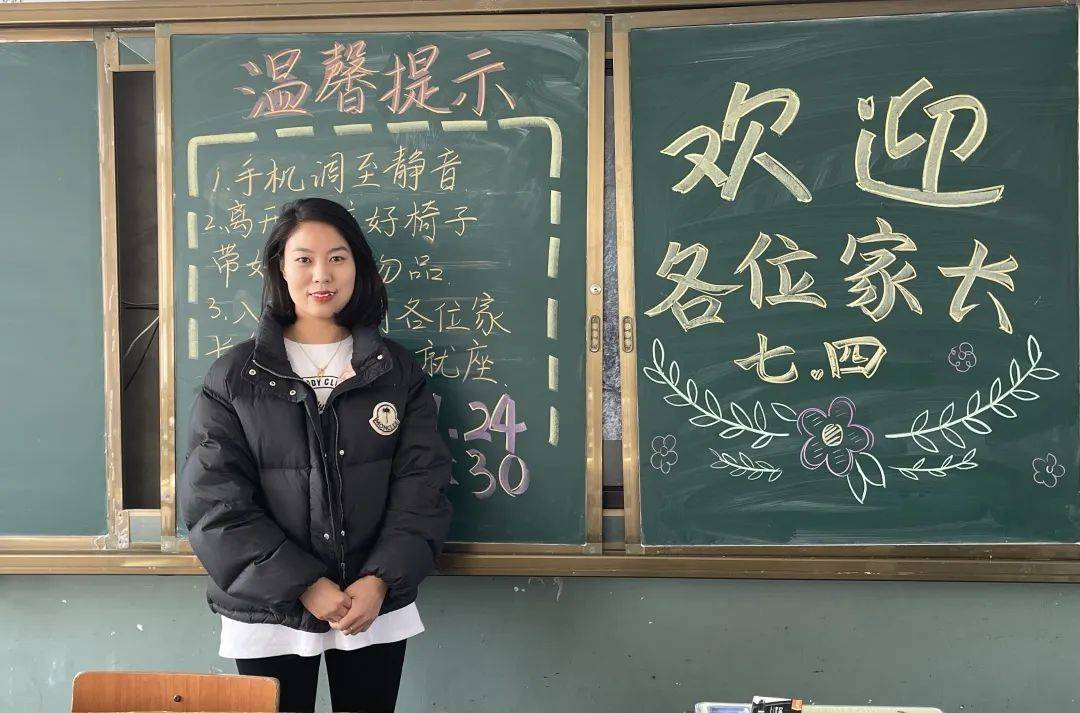 温馨提示
1.手机调至静音
2.离开 好椅子
带好 物品.
3.入 各位家
长 就座.
.24
30
欢迎
各位家长
七.四
DDY CL
MONCLER